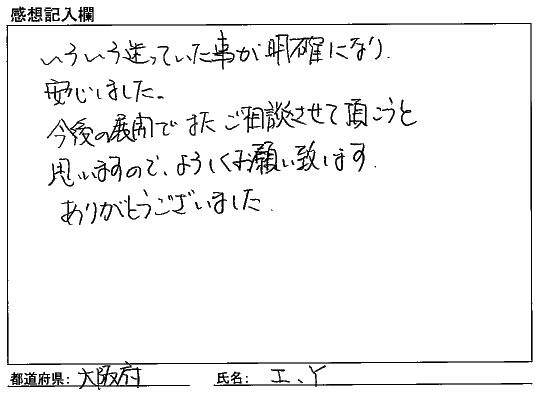 感想記入欄
いろいろ迷っていた事が明確になり
安心しました。
今後の展開でまたご相談させて頂こうと
思いますので、よろしくお願い致します.
ありがとうございました.
都道府県: 大阪府 氏名: エ、Y